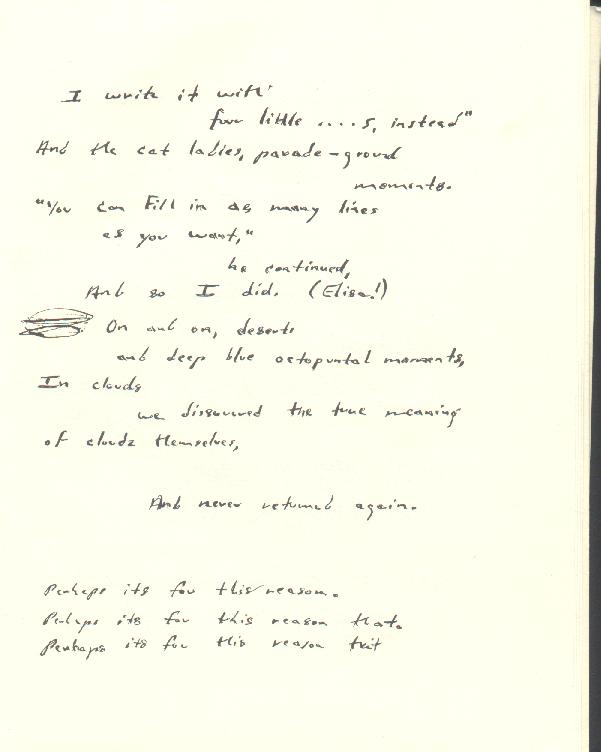 I write it with'
four little ....s, instead"
And the cat ladies, parade-ground
moments.
"You can fill in as many lines
as you want,"
he continued,
And so I did. (Elisa!)
On and on, deserts
and deep blue octopuntal moments,
In clouds
we discovered the true meaning
of clouds themselves,
And never returned again.
Perhaps its for this reason.
Perhaps its for this reason that.
Perhaps its for this reason that